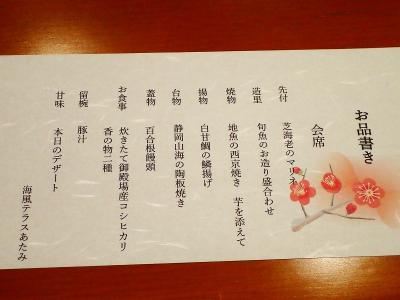 お品書き
会席
先付　芝海老のマリネ
造里　旬魚のお造り盛合わせ
焼物　地魚の西京焼き　芋を添えて
揚物　白甘鯛の鱗揚げ
台物　静岡山海の陶板焼き
蓋物　百合根饅頭
お食事　炊きたて御殿場産コシヒカリ
香の物二種
留椀　豚汁
甘味　本日のデザート
海風テラスあたみ